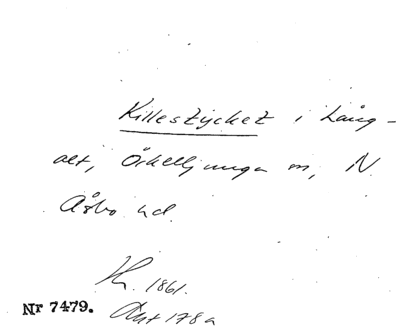 Killestycket i Lång-
alt, Örkelljunga sn, N.
Åsbo hd.
1861.
Nr 7479.
178a